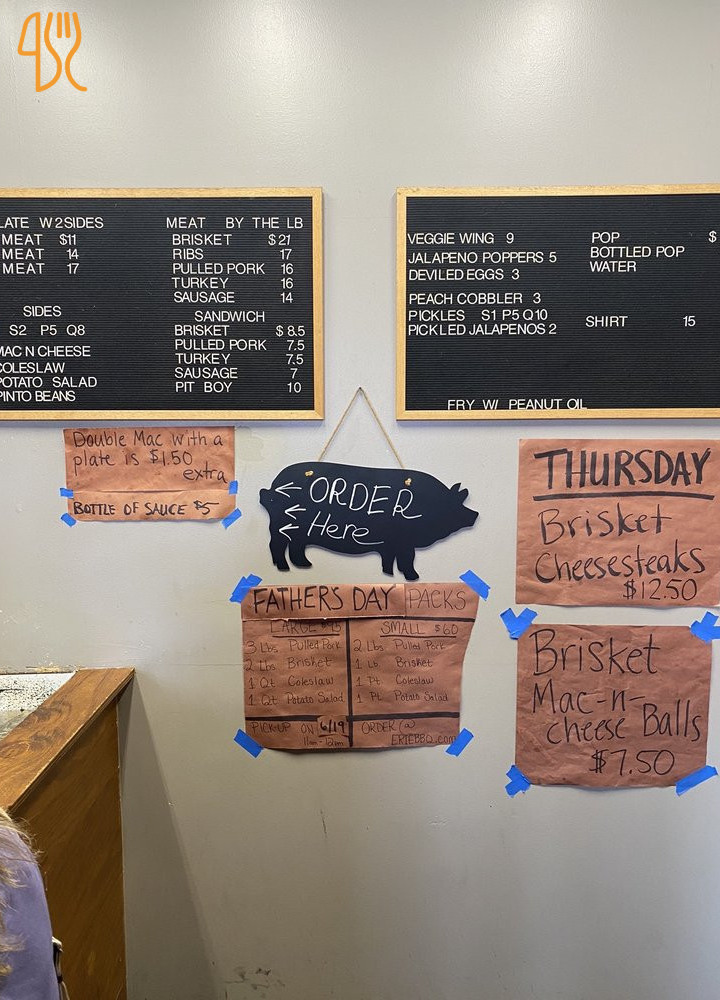 LATE W 2 SIDES
MEAT $11
MEAT 14
MEAT 17
SIDES
S2 P5 Q8
MAC N CHEESE
COLESLAW
POTATO SALAD
PINTO BEANS
MEAT BY THE LB
BRISKET $21
RIBS 17
PULLED PORK 16
TURKEY 16
SAUSAGE 14
SANDWICH
BRISKET $8.5
PULLED PORK 7.5
TURKEY 7.5
SAUSAGE 7
PIT BOY 10
VEGGIE WING 9
JALAPENO POPPERS 5
DEVILED EGGS 3
PEACH COBBLER 3
PICKLES S1 P5 Q10
PICKLED JALAPENOS 2
POP $
BOTTLED POP
WATER
SHIRT 15
FRY W/ PEANUT OIL
Double Mac with a
plate is $1.50
extra
BOTTLE OF SAUCE $5
ORDER
Here
FATHERS DAY PACKS
LARGE
3 Lbs Pulled Pork
2 Lbs Brisket
1 Qt Coleslaw
1 Qt Potato Salad
SMALL $60
2 Lbs Pulled Pork
1 Lb Brisket
1 Pt Coleslaw
1 Pt Potato Salad
PICKUP ON 6/19
11am-12pm
ORDER @
ERIEBBQ.com
THURSDAY
Brisket
Cheesesteaks
$12.50
Brisket
Mac-n-
cheese Balls
$7.50